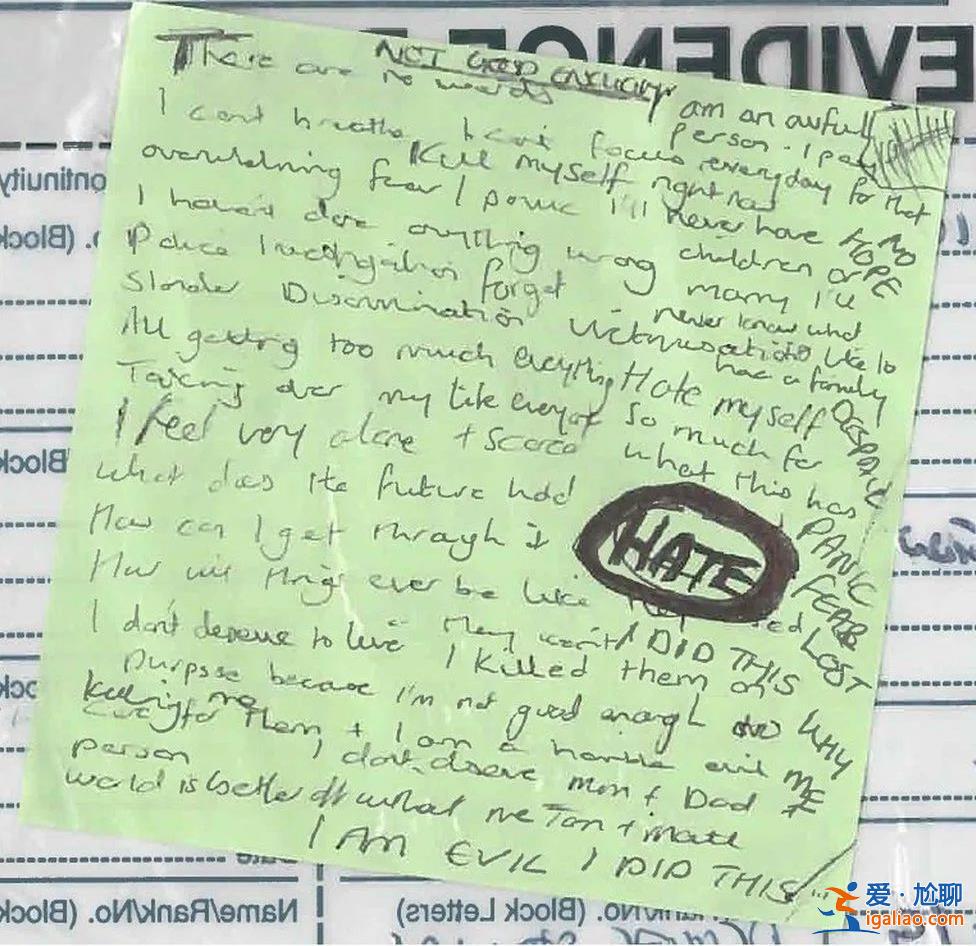 EVIDENCE
NOT GOOD ENOUGH
There are no words
I am an awful person. I pay
I cant breathe I can't focus everyday for that
Kill myself right now
overwhelming fear I panic I'll never have
NO HOPE
I haven't done anything wrong
children or marry I'll
Police investigation forget never know what
Slander Discrimination Victimisation it's like to
have a family
All getting too much everything Hate myself
so much for
DESPAIR
Taking over my life
I feel very alone + scared what this has
what does the future hold
PANIC
How can I get through it
HATE
FEAR
How will things ever be like
LOST
I don't deserve to live I DID THIS
I killed them on
purpose because I'm not good enough to
WHY ME
Killing me
care for them + I am a horrible evil
person I don't deserve mum + Dad
world is better off
I AM EVIL I DID THIS
Continuity
(Block
Name/Rank/No. (Block
Rank/No. (Block Letters)
Date
爱·尬聊
igaliao.com